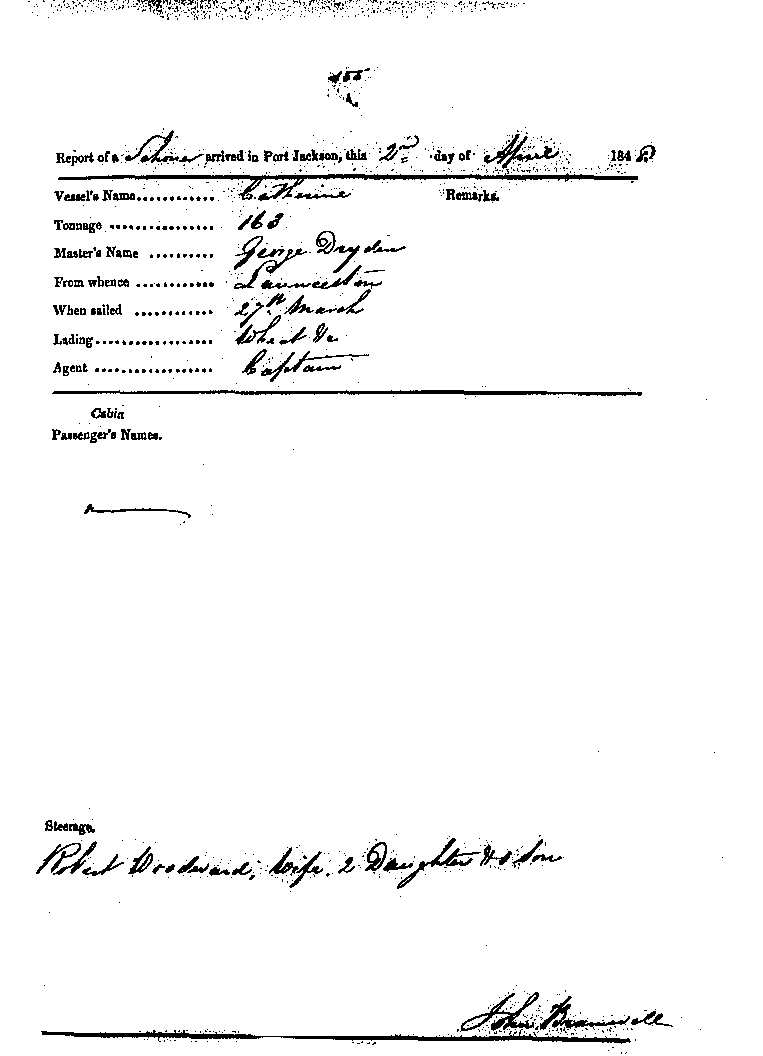 155
Report of a Schooner arrived in Port Jackson, this 2nd day of April 184
Vessel's Name............. Catherine Remarks.
Tonnage ................. 163
Master's Name .......... George Dryden
From whence ............ Launceston
When sailed ............ 27th March
Lading................... Wheat &c
Agent .................. Captain
Cabin
Passenger's Names.
Steerage.
Robert Woodward, Wife, 2 Daughter & Son
John Bramwell